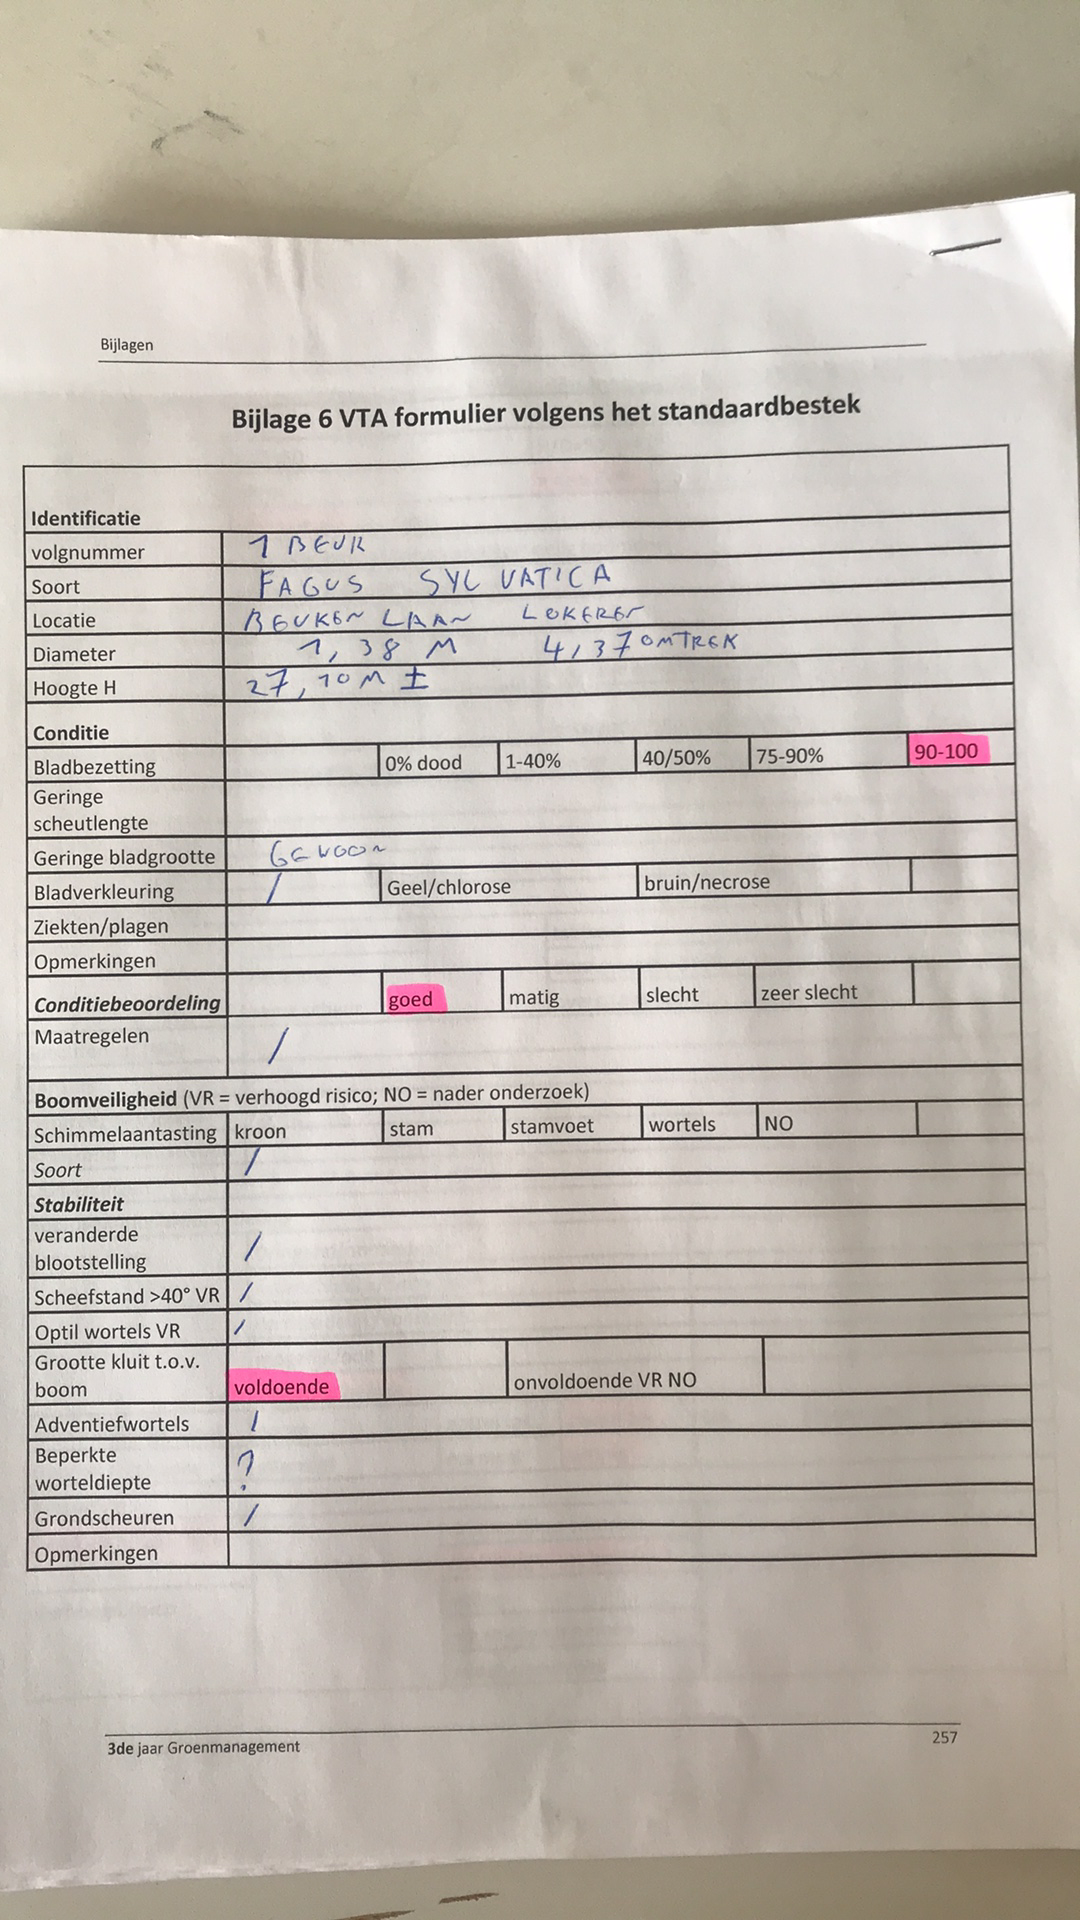 Bijlagen
Bijlage 6 VTA formulier volgens het standaardbestek
Identificatie
volgnummer 1 BEUK
Soort FAGUS SYLVATICA
Locatie BEUKEN LAAN LOKEREN
Diameter 1,38 M 4,37 OMTREK
Hoogte H 27,10 M ±
Conditie
Bladbezetting 0% dood 1-40% 40/50% 75-90% 90-100
Geringe
scheutlengte
Geringe bladgrootte GEWOON
Bladverkleuring / Geel/chlorose bruin/necrose
Ziekten/plagen
Opmerkingen
Conditiebeoordeling goed matig slecht zeer slecht
Maatregelen /
Boomveiligheid (VR = verhoogd risico; NO = nader onderzoek)
Schimmelaantasting kroon stam stamvoet wortels NO
Soort /
Stabiliteit
veranderde
blootstelling /
Scheefstand >40° VR /
Optil wortels VR /
Grootte kluit t.o.v.
boom voldoende onvoldoende VR NO
Adventiefwortels /
Beperkte
worteldiepte ?
Grondscheuren /
Opmerkingen
3de jaar Groenmanagement 257